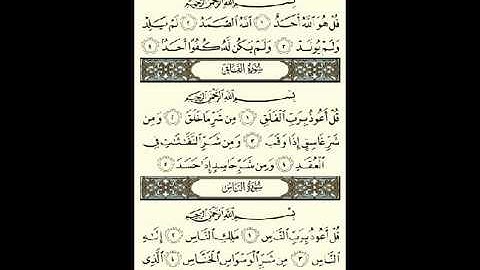 بِسْمِ ٱللَّهِ ٱلرَّحْمَٰنِ ٱلرَّحِيمِ
قُلْ هُوَ ٱللَّهُ أَحَدٌ ١ ٱللَّهُ ٱلصَّمَدُ ٢ لَمْ يَلِدْ
وَلَمْ يُولَدْ ٣ وَلَمْ يَكُن لَّهُۥ كُفُوًا أَحَدٌۢ ٤
سُورَةُ الفَلَقِ
بِسْمِ ٱللَّهِ ٱلرَّحْمَٰنِ ٱلرَّحِيمِ
قُلْ أَعُوذُ بِرَبِّ ٱلْفَلَقِ ١ مِن شَرِّ مَا خَلَقَ ٢ وَمِن
شَرِّ غَاسِقٍ إِذَا وَقَبَ ٣ وَمِن شَرِّ ٱلنَّفَّٰثَٰتِ فِى
ٱلْعُقَدِ ٤ وَمِن شَرِّ حَاسِدٍ إِذَا حَسَدَ ٥
سُورَةُ النَّاسِ
بِسْمِ ٱللَّهِ ٱلرَّحْمَٰنِ ٱلرَّحِيمِ
قُلْ أَعُوذُ بِرَبِّ ٱلنَّاسِ ١ مَلِكِ ٱلنَّاسِ ٢ إِلَٰهِ
ٱلنَّاسِ ٣ مِن شَرِّ ٱلْوَسْوَاسِ ٱلْخَنَّاسِ ٤ ٱلَّذِى